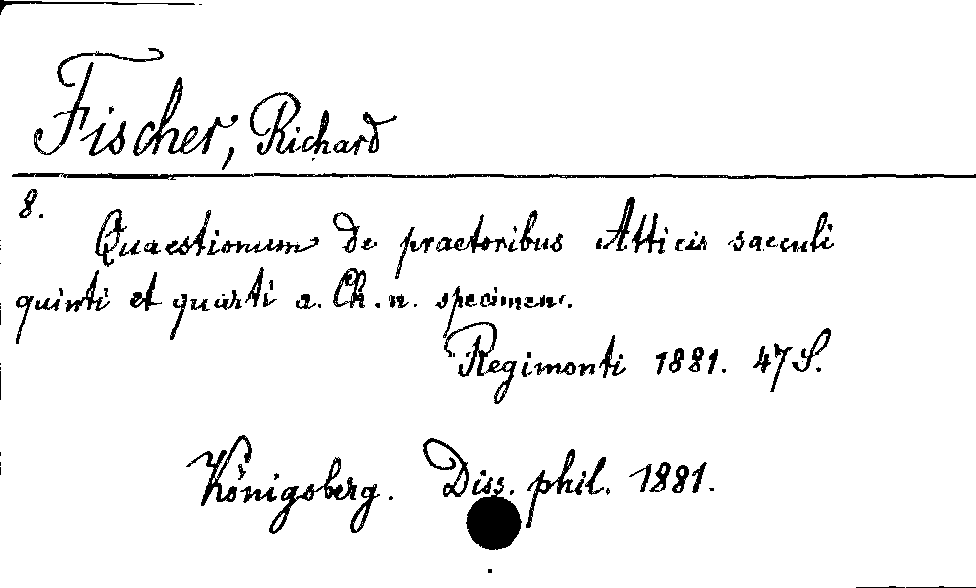 Fischer, Richard
8.
Quaestionum de praetoribus Atticis saeculi
quinti et quarti a. Ch. n. specimen.
Regimonti 1881. 47 S.
Königsberg. Diss. phil. 1881.